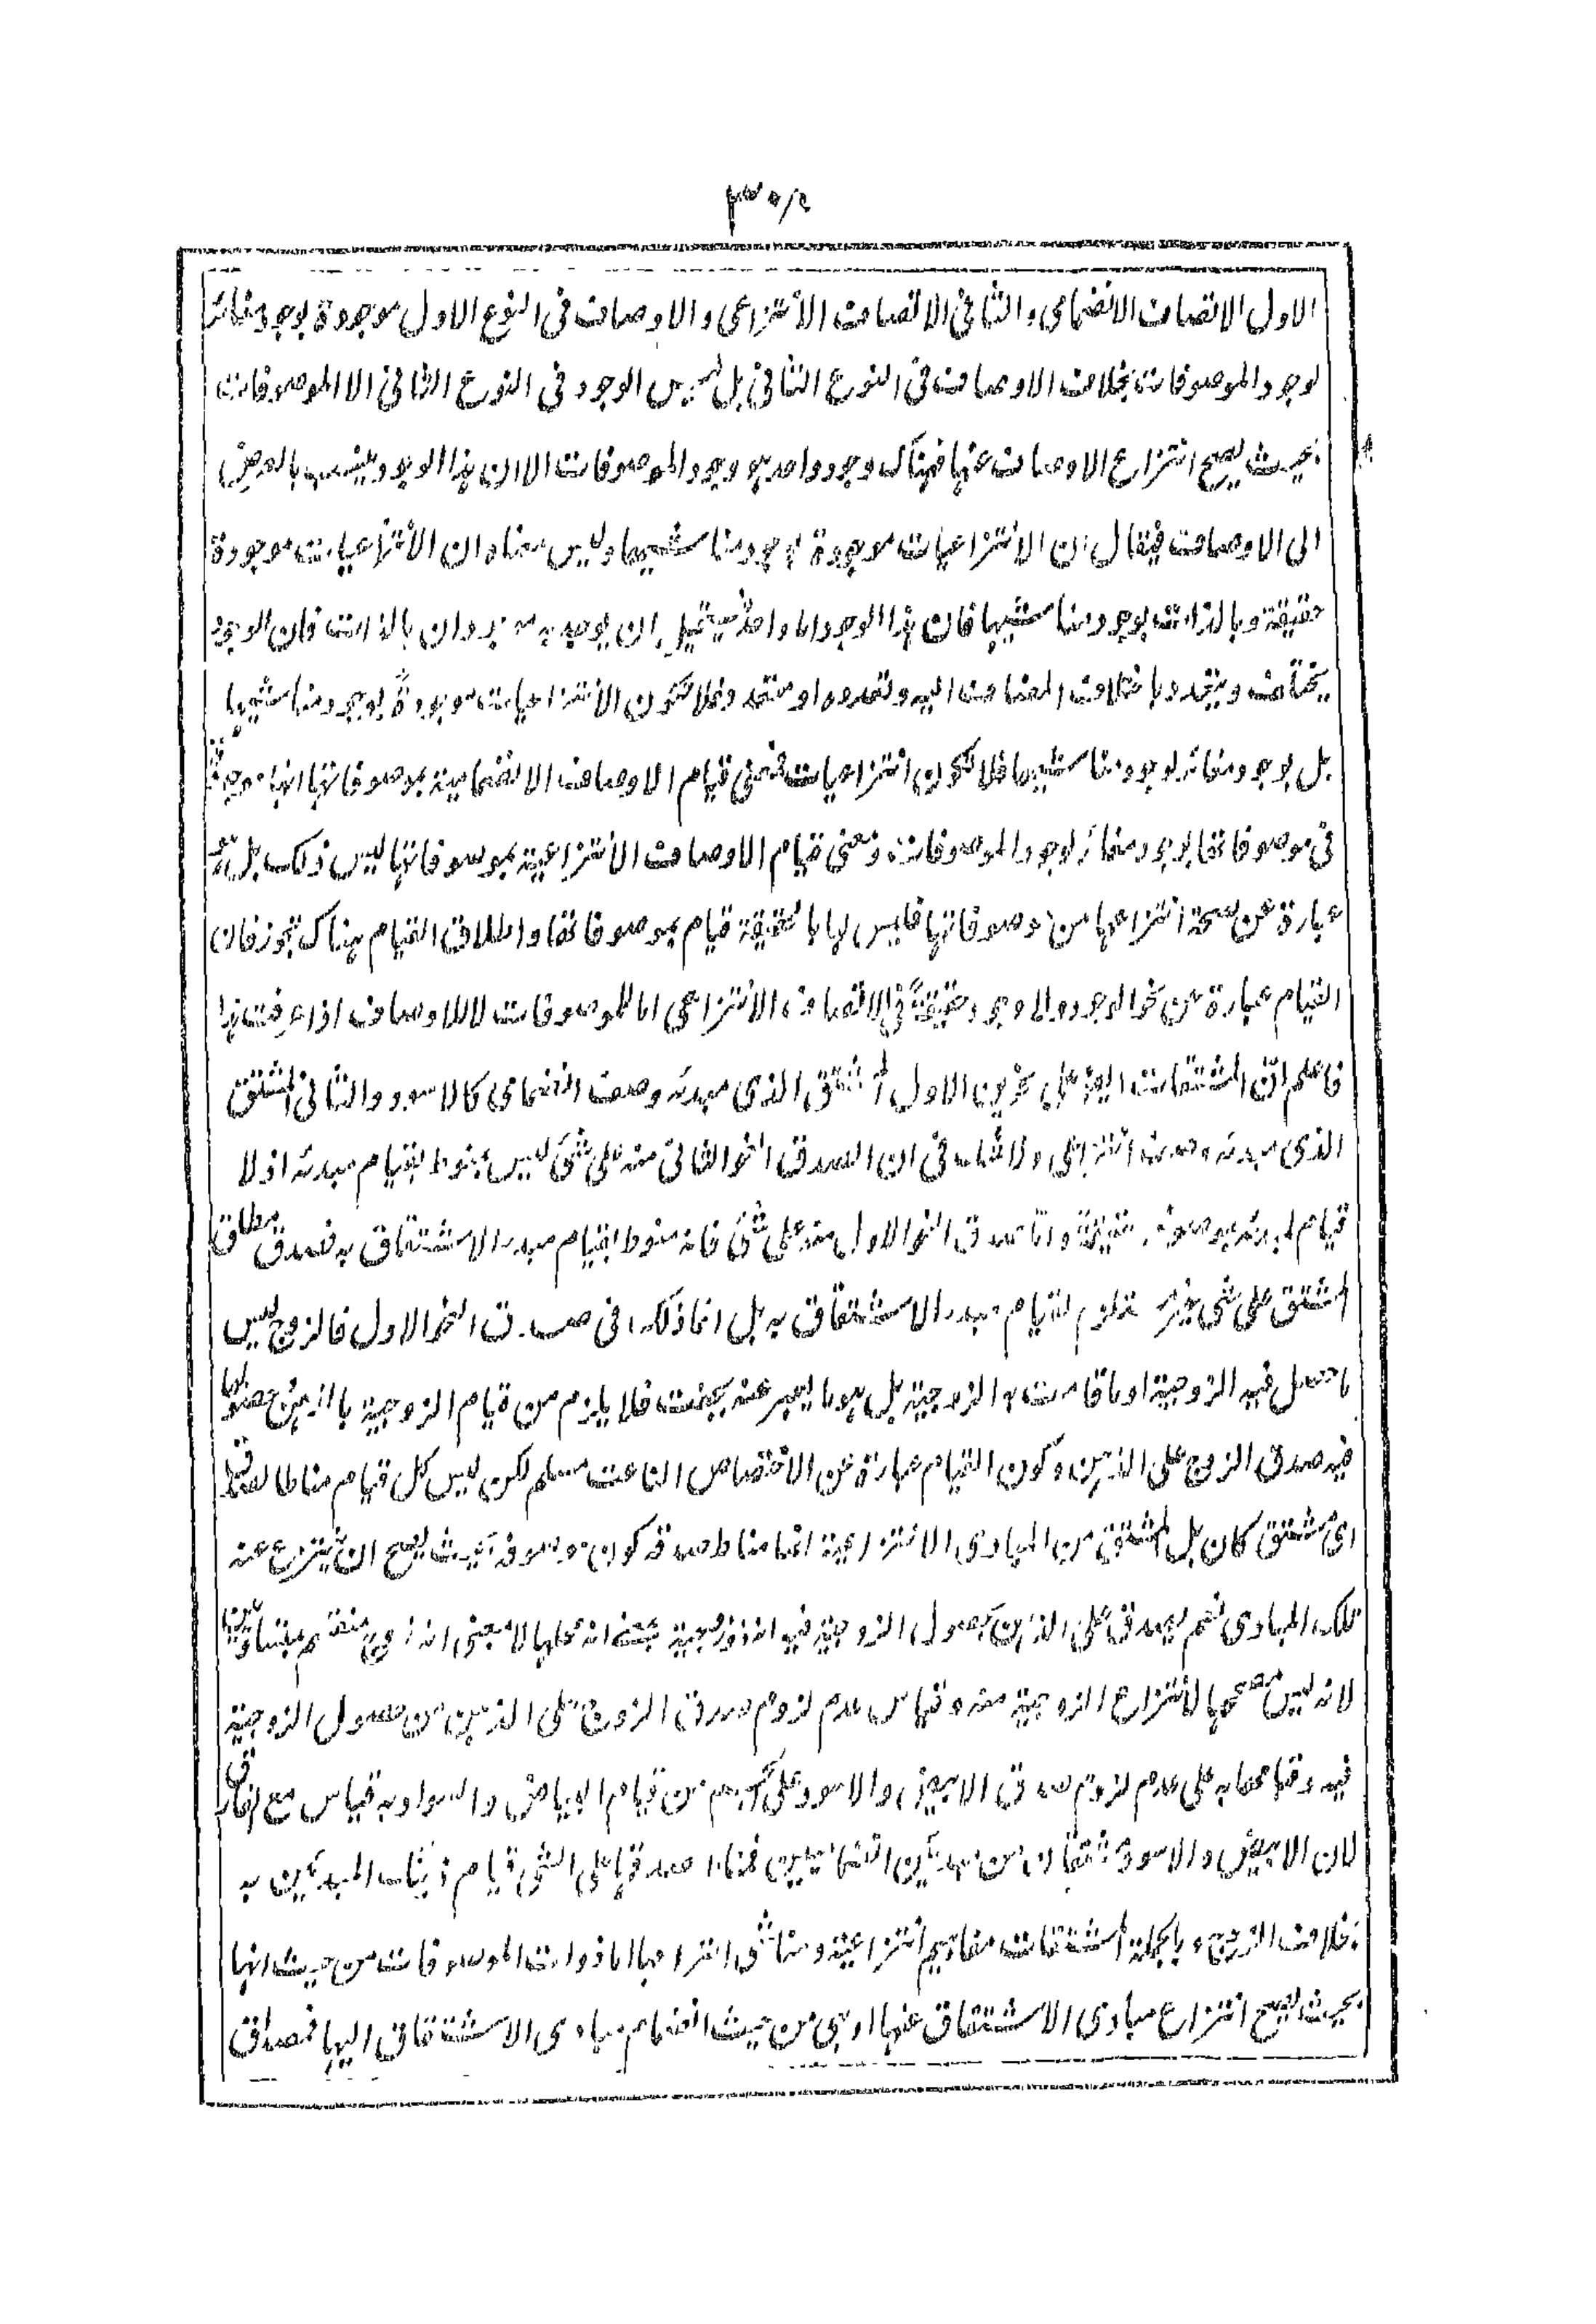 الاول الاتصاف الانضمامى والثانى الاتصاف الانتزاعى والاوصاف فى النوع الاول موجودة بوجود مغائر
لوجود الموصوفات بخلاف الاوصاف فى النوع الثانى بل ليس الوجود فى النوع الثانى الا الموصوفات
بحيث يصح انتزاع الاوصاف عنها فهناك وجود واحد هو وجود الموصوفات الا ان هذا الوجود ينسب بالعرض
الى الاوصاف فيقال ان الانتزاعيات موجودة بوجود مناشيها وليس معناه ان الانتزاعيات موجودة
حقيقة وبالذات بوجود مناشيها فان هذا الوجود اما واحد فيستحيل ان يوجد به موجودان بالذات فان الوجود
يختلف ويتعدد باختلاف المضاف اليه وتعدده او متعدد فلا تكون الانتزاعيات موجودة بوجود مناشيها
بل بوجود مغائر لوجود مناشيها فلا تكون انتزاعيات فمعنى قيام الاوصاف الانضمامية بموصوفاتها انها موجودة
فى موصوفاتها بوجود مغائر لوجود الموصوفات ومعنى قيام الاوصاف الانتزاعية بموصوفاتها ليس ذلك بل هو
عبارة عن صحة انتزاعها من موصوفاتها فليس لها بالحقيقة قيام بموصوفاتها واطلاق القيام هناك تجوز فان
القيام عبارة عن نحو الوجود والموجود حقيقة فى الاتصاف الانتزاعى اما للموصوفات لا للاوصاف اذا عرفت هذا
فاعلم ان المشتقات ايضا على نحوين الاول المشتق الذى مبدئه وصف انضمامى كالاسود والثانى المشتق
الذى مبدئه وصف انتزاعى ولا شك فى ان الصدق النحو الثانى منه على شئ ليس بمنوط بقيام مبدئه اذ لا
قيام لمبدئه بموصوفه حقيقة واما صدق النحو الاول منه على شئ فانه منوط بقيام مبدء الاشتقاق به فصدق مطلق
المشتق على شئ غير ملزوم لقيام مبدء الاشتقاق به بل انما ذلك فى صدق النحو الاول فالزوج ليس
ما حصل فيه الزوجية او ما قامت به الزوجية بل هو ما يعبر عنه بجفت فلا يلزم من قيام الزوجية بالذهن وحصولها
فيه صدق الزوج على الذهن وكون القيام عبارة عن الاختصاص الناعت مسلم لكن ليس كل قيام مناطا لصدق
اى مشتق كان بل المشتق من المبادى الانتزاعية انما مناط صدقه كون موصوفه بحيث يصح ان ينتزع عنه
تلك المبادى نعم يصدق على الذهن بحصول الزوجية فيه انه ذو زوجية بمعنى انه محلها لا بمعنى انه زوج منقسم بمتساويين
لانه ليس مصححا لانتزاع الزوجية منه وقياس عدم لزوم صدق الزوج على الذهن من حصول الزوجية
فيه وقيامها به على عدم لزوم صدق الابيض والاسود على الجسم من قيام البياض والسواد به قياس مع الفارق
لان الابيض والاسود مشتقان من مبدئين انضماميين فمناط صدقهما على الشئ قيام ذينك المبدئين به
بخلاف الزوج وبالجملة المشتقات مفاهيم انتزاعية ومناشى انتزاعها اما ذوات الموصوفات من حيث انها
بحيث يصح انتزاع مبادى الاشتقاق عنها او هى من حيث انضمام مبادى الاشتقاق اليها فمصداق